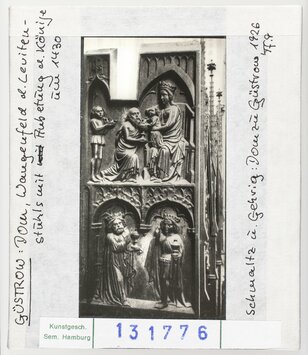 GÜSTROW: Dom, Wangenfeld d. Leviten-
stuhls mit Anbetung d. Könige
um 1430
Schmaltz u. Gehrig: Dom zu Güstrow 1926
Kunstgesch.
Sem. Hamburg
131776